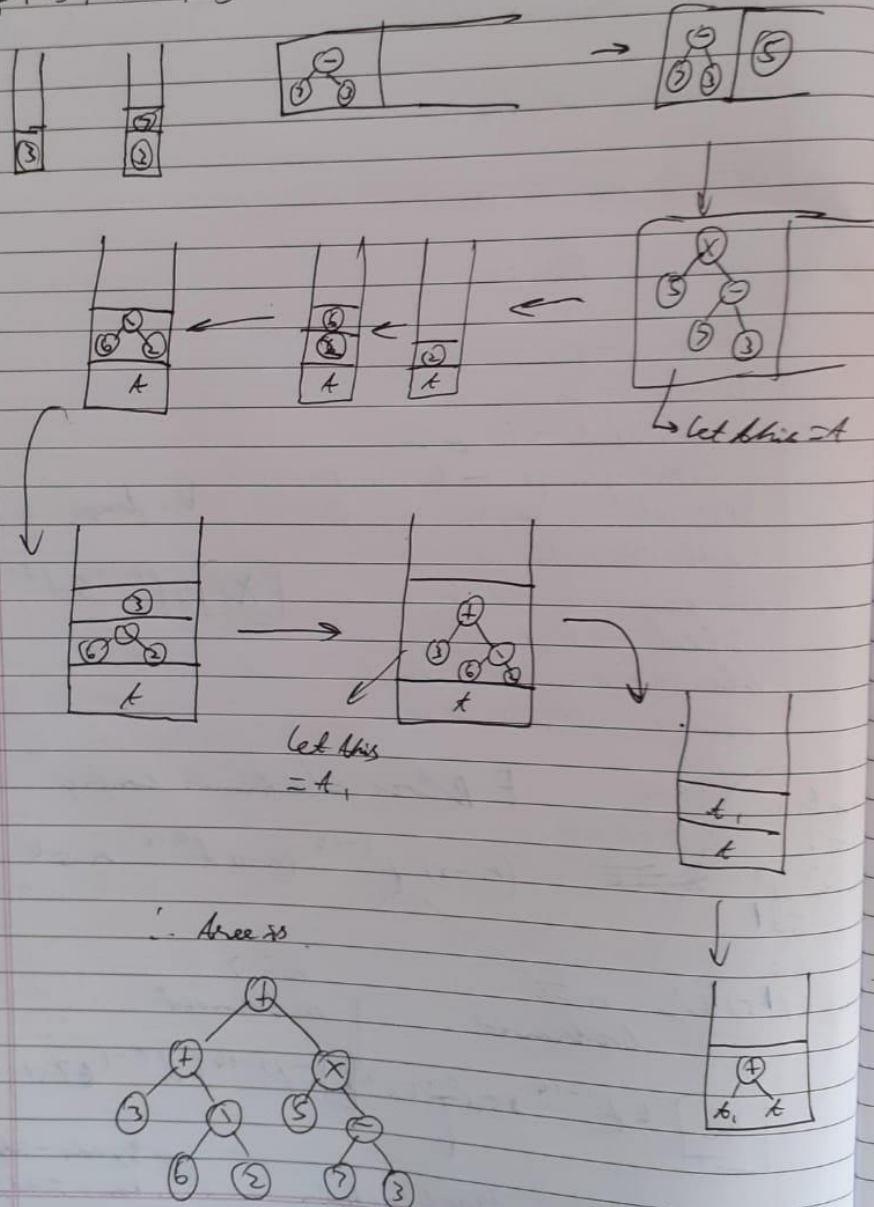 - 5
7 3
→
- 5
7 3
3
7
3
×
5 -
7 3
let this = t
2
t
6
2
t
\
6 2
t
3
\
6 2
t
+
3 \
6 2
t
let this
= t₁
t₁
t
∴ tree is
+
t₁ t
+
+ ×
3 \ 5 -
6 2 7 3